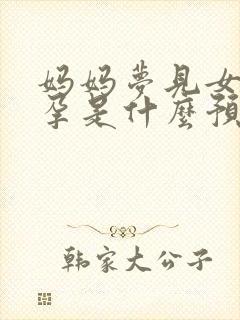 妈妈夢見女
孕是什麼預
韩家大公子